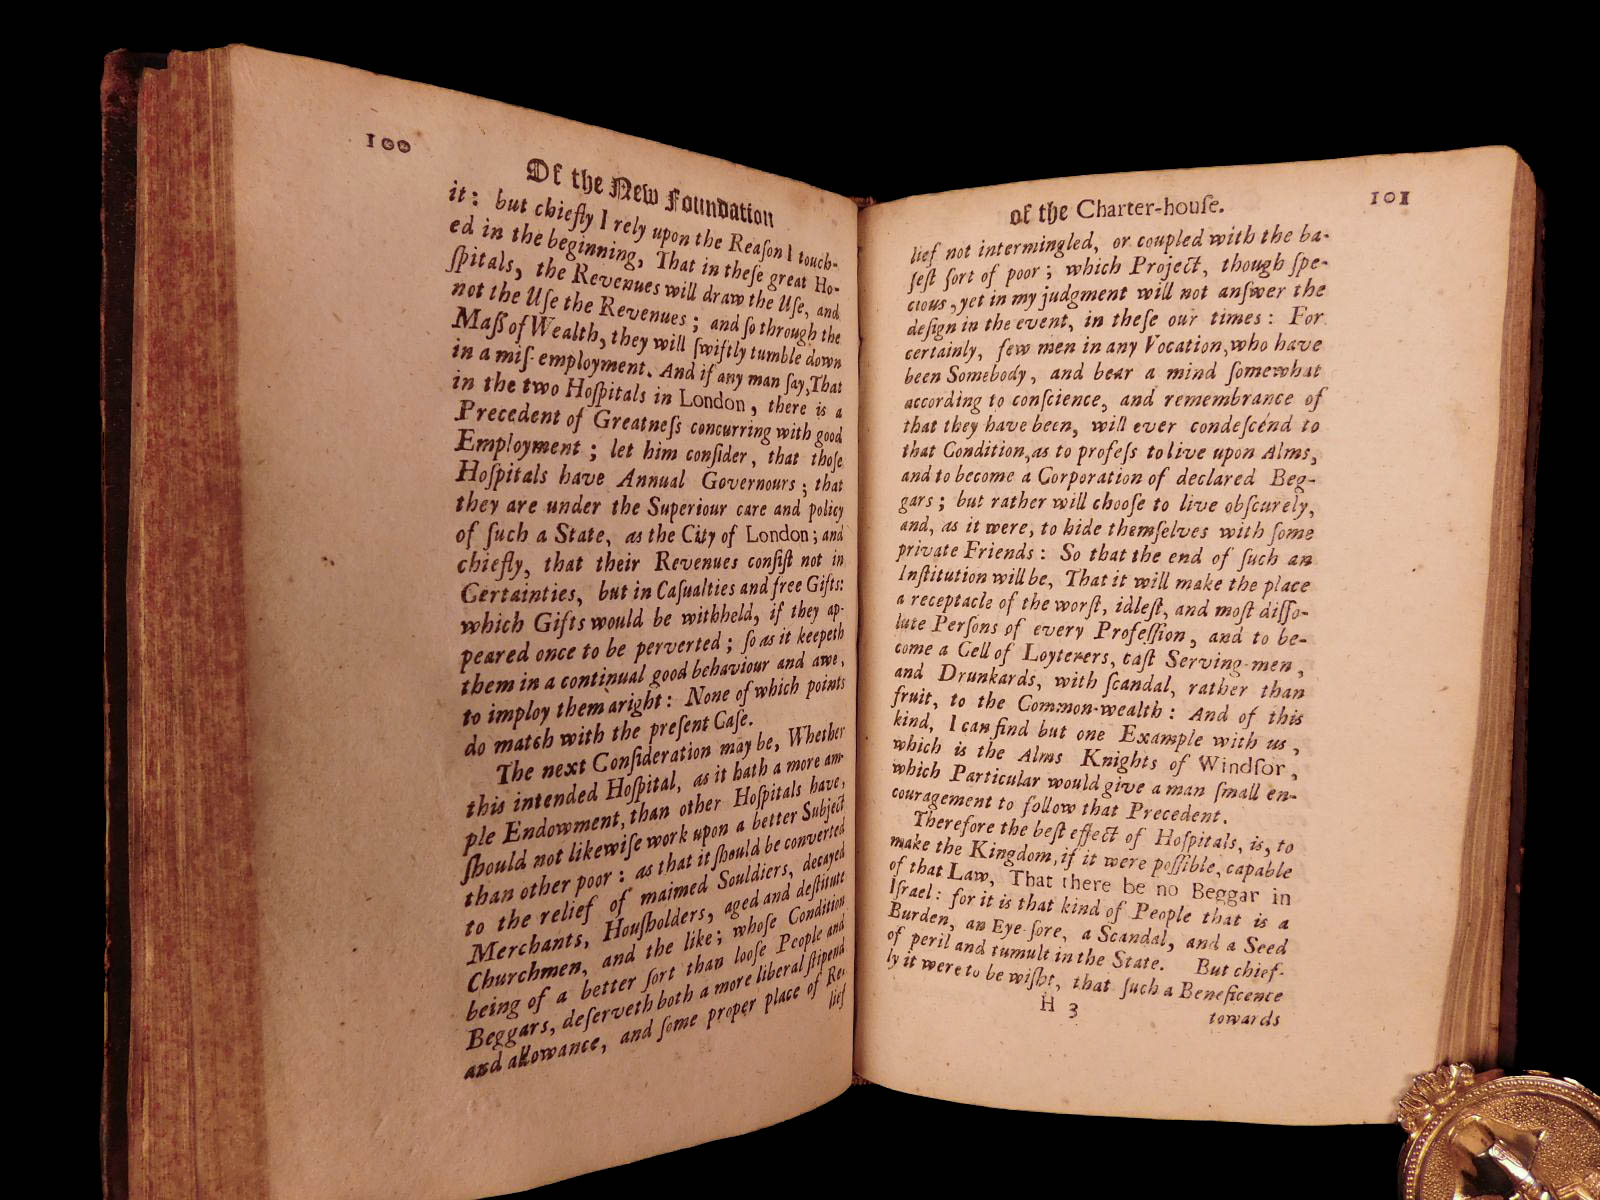 100
Of the New Foundation
it: but chiefly I rely upon the Reaſon I touch-
ed in the beginning, That in theſe great Ho-
ſpitals, the Revenues will draw the Uſe, and
not the Uſe the Revenues; and ſo through the
Maſſ of Wealth, they will ſwiftly tumble down
in a miſ-employment. And if any man ſay, That
in the two Hoſpitals in London, there is a
Precedent of Greatneſs concurring with good
Employment; let him conſider, that thoſe
Hoſpitals have Annual Governours; that
they are under the Superiour care and policy
of ſuch a State, as the City of London; and
chiefly, that their Revenues conſiſt not in
Certainties, but in Caſualties and free Gifts:
which Gifts would be withheld, if they ap-
peared once to be perverted; ſo as it keepeth
them in a continual good behaviour and awe,
to imploy them aright: None of which points
do match with the preſent Caſe.
The next Conſideration may be, Whether
this intended Hoſpital, as it hath a more am-
ple Endowment, than other Hoſpitals have,
ſhould not likewiſe work upon a better Subject
than other poor: as that it ſhould be converted
to the relief of maimed Souldiers, decayed
Merchants, Houſholders, aged and deſtitute
Churchmen, and the like; whoſe Condition
being of a better ſort than looſe People and
Beggars, deſerveth both a more liberal ſtipend
and allowance, and ſome proper place of Re-
lief
101
of the Charter-houſe.
lief not intermingled, or coupled with the ba-
ſeſt ſort of poor; which Project, though ſpe-
cious, yet in my judgment will not anſwer the
deſign in the event, in theſe our times: For
certainly, few men in any Vocation, who have
been Somebody, and bear a mind ſomewhat
according to conſcience, and remembrance of
that they have been, will ever condeſcend to
that Condition, as to profeſs to live upon Alms,
and to become a Corporation of declared Beg-
gars; but rather will chooſe to live obſcurely,
and, as it were, to hide themſelves with ſome
private Friends: So that the end of ſuch an
Inſtitution will be, That it will make the place
a receptacle of the worſt, idleſt, and moſt diſſo-
lute Perſons of every Profeſſion, and to be-
come a Cell of Loyterers, caſt Serving-men,
and Drunkards, with ſcandal, rather than
fruit, to the Common-wealth: And of this
kind, I can find but one Example with us,
which is the Alms Knights of Windſor,
which Particular would give a man ſmall en-
couragement to follow that Precedent.
Therefore the beſt effect of Hoſpitals, is, to
make the Kingdom, if it were poſſible, capable
of that Law, That there be no Beggar in
Iſrael: for it is that kind of People that is a
Burden, an Eye-ſore, a Scandal, and a Seed
of peril and tumult in the State. But chief-
ly it were to be wiſht, that ſuch a Beneficence
H 3
towards